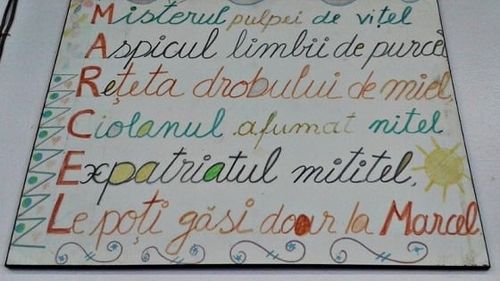 Misterul pulpei de vițel
Aspicul limbii de purcel
Rețeta drobului de miel,
Ciolanul afumat nitel
Expatriatul mititel,
Le poți găsi doar la Marcel